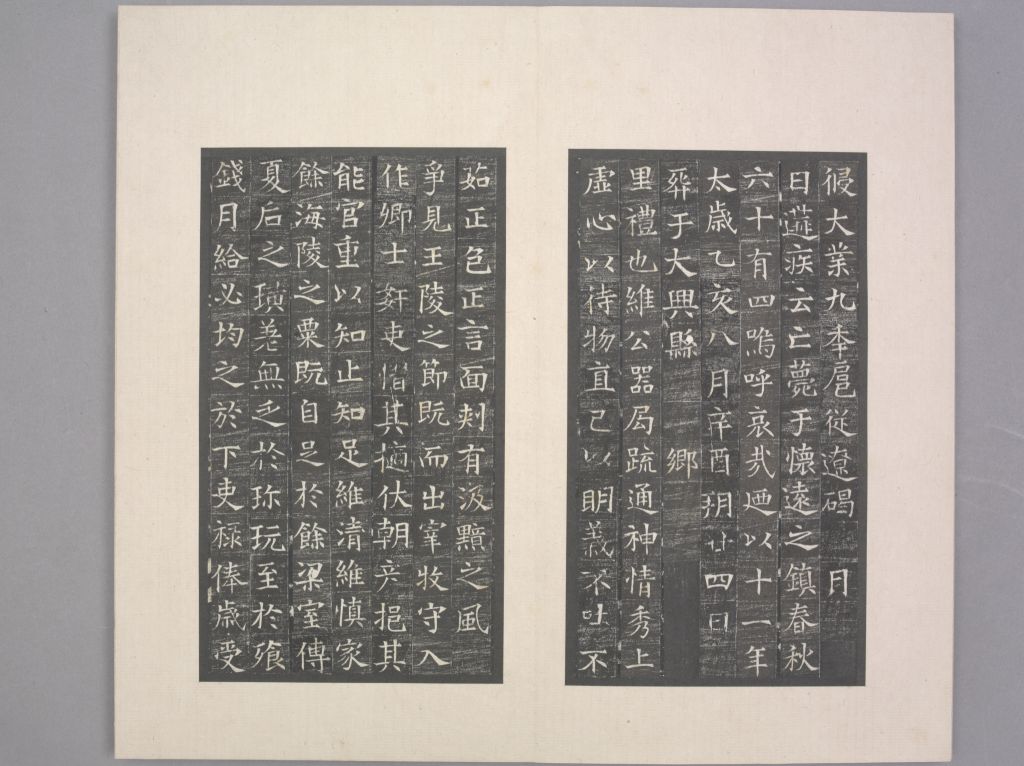 役大業九年扈從遼碣 月
日遘疾云亡薨于懷遠之鎮春秋
六十有四嗚呼哀哉迺以十一年
太歲乙亥八月辛酉朔廿四日
葬于大興縣 鄉
里禮也維公器局疏通神情秀上
虛心以待物直己以明義不吐不
茹正色正言面刾有汲黯之風
爭見王陵之節既而出宰牧守入
作卿士奸吏憯其擿伏朝彥挹其
能官重以知止知足維清維慎家
餘海陵之粟既自足於餘梁室傳
夏后之璜差無乏於珎玩至於飧
錢月給必均之於下吏祿俸歲受